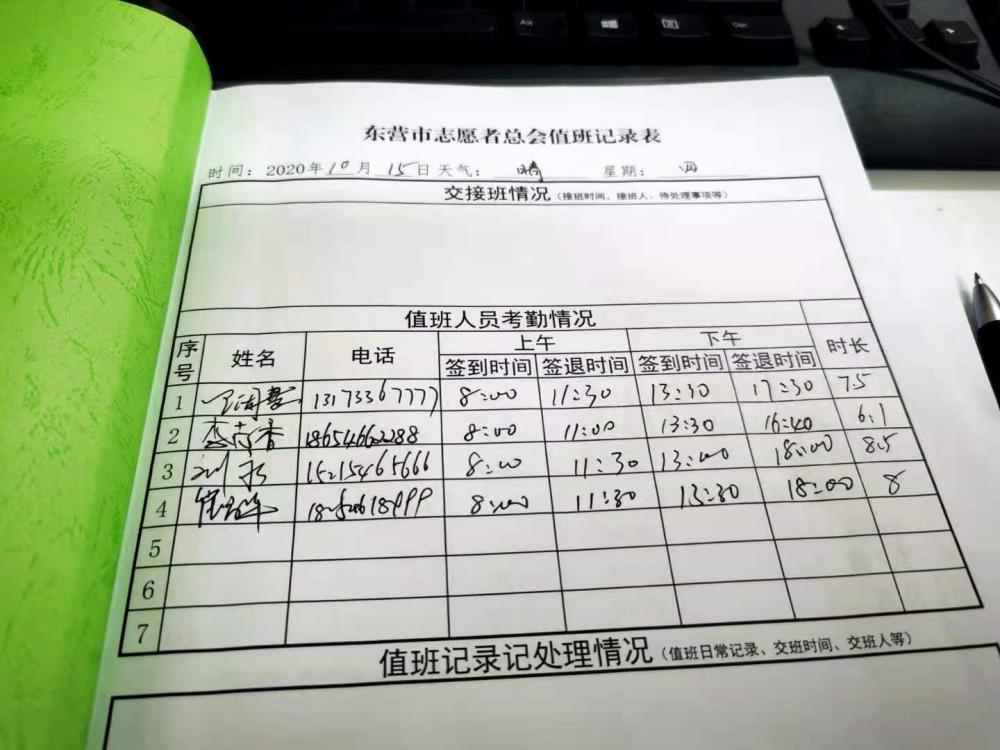 Alt
Ctrl
东营市志愿者总会值班记录表
时间：2020年10月15日天气：晴 星期：四
交接班情况（接班时间、接班人、待处理事项等）
值班人员考勤情况
序号 姓名 电话 上午 下午 时长
签到时间 签退时间 签到时间 签退时间
1 13173367777 8:00 11:30 13:30 17:30 7.5
2 18654662288 8:00 11:00 13:30 16:40 6.1
3 15215465666 8:00 11:30 13:00 18:00 8.5
4 8:00 11:30 13:30 18:00 8
5
6
7
值班记录记处理情况（值班日常记录、交班时间、交班人等）